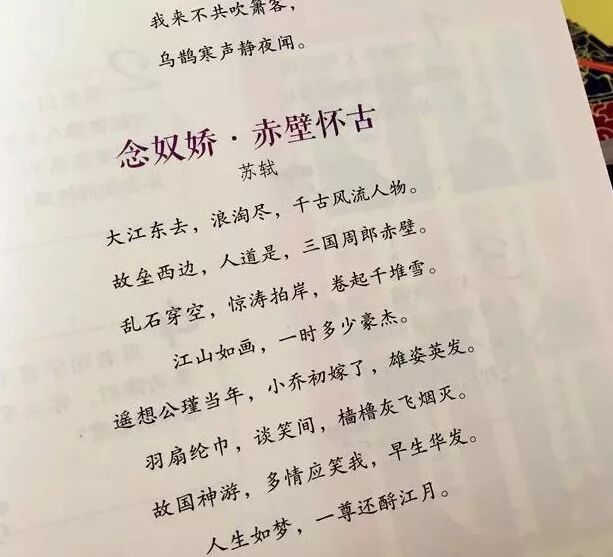 我来不共吹箫客，
乌鹊寒声静夜闻。
念奴娇·赤壁怀古
苏轼
大江东去，浪淘尽，千古风流人物。
故垒西边，人道是，三国周郎赤壁。
乱石穿空，惊涛拍岸，卷起千堆雪。
江山如画，一时多少豪杰。
遥想公瑾当年，小乔初嫁了，雄姿英发。
羽扇纶巾，谈笑间，樯橹灰飞烟灭。
故国神游，多情应笑我，早生华发。
人生如梦，一尊还酹江月。